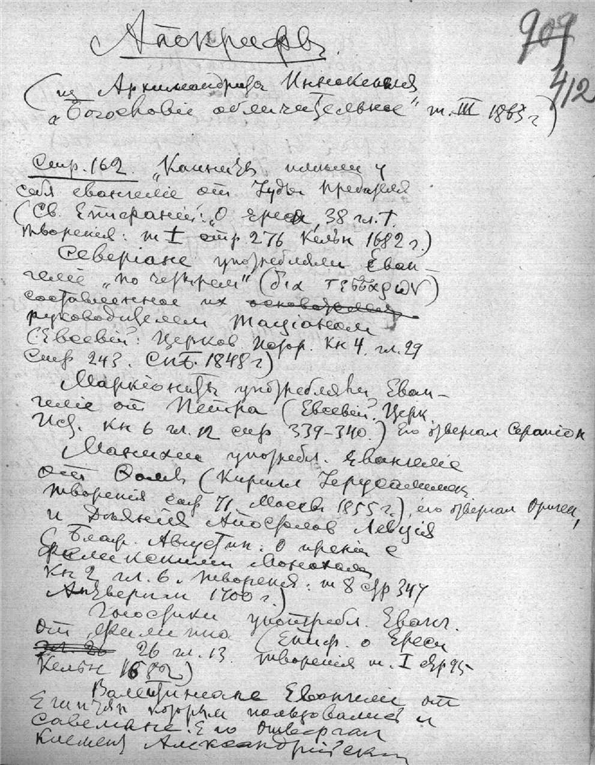 Апокрифъ.
909
412
(из Архимандрита Иннокентия
"Богословіе обличительное" т. III 1863 г)
Стр. 162 "Каиниты имели у
себя евангеліе от Іуды предателя
(Св. Епифаней: О ереси, 38 гл. Т.
творения: т I стр 276 Кельн 1682 г.)
Севериане употребляли Еван-
гелие "по четырем" (δια τεσσαρων)
составленное их
руководителем Татианом
(Евсевий: Церков. Истор. Кн 4. гл. 29
Стр 243. СПб. 1848 г)
Маркіониты употребляли Еван-
геліе от Петра (Евсевий. Церк.
Ист. Кн 6 гл. 12 стр 339-340.) Его отвергал Серапіон
Манихеи употребл. Евангеліе
от Фомы (Кирилл Іерусалимск.
творения стр 71, Москва 1855 г.), его отвергал Ориген,
и Дѣянія Апостолов Левкія
(Блаж. Августин: О преніи с
Феликсом Манихеем
Кн 2 гл. 6. творения: т 8 стр 347
Антверпен 1700 г.)
Гностики употребл. Еванг.
от Филиппа (Епиф. о Ереси
26 гл. 13. творения т. I стр 95
Кельн 1682)
Валентиніане Евангеліе от
Египтян которым пользовались и
савелиане. Его отвергал
Климент Александрійскій